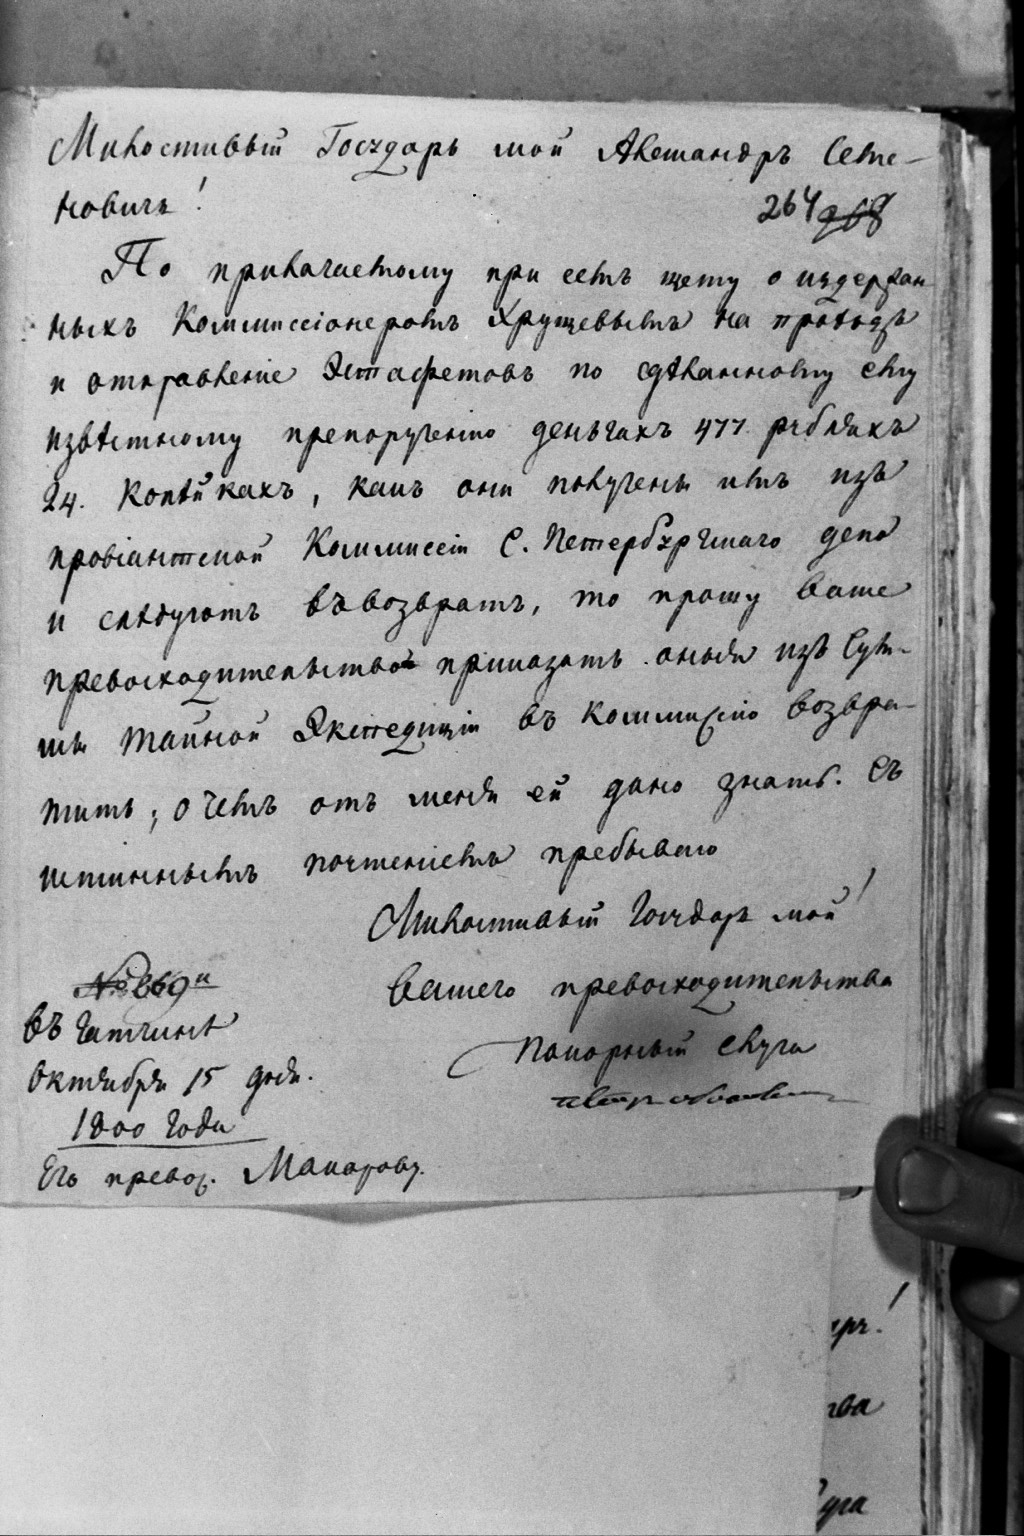 Милостивый Государь мой Александръ Семе-
новичь!
264 268
По прилагаемому при семъ щету о издержан
ныхъ Коммиссіонеромъ Хрущевымъ на проѣздъ
и отправленіе Эстафетовъ по сдѣланному ему
извѣстному препорученію деньгахъ 477 рубляхъ
24. копѣйкахъ, какъ они получены имъ изъ
провіантской Коммиссіи С. Петербургскаго депо
и слѣдуютъ въ возвратъ, то прошу ваше
превосходительство приказать оныя изъ Сум-
мы тайной Экспедиціи въ Коммисію возвра-
тить; о чемъ отъ меня ей дано знать. Съ
истиннымъ почтеніемъ пребываю
Милостивый Государь мой!
вашего превосходительства
№ 669й
покорный слуга
въ Гатчинѣ
Октября 15 дня.
1800 года
Его превос. Макарову.
ярь!
тва
уга